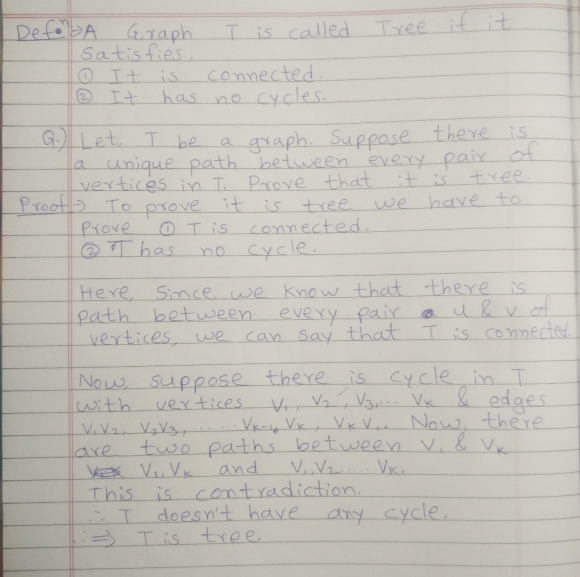 Defⁿ⇒ A Graph T is called Tree if it
satisfies,
① It is connected.
② It has no cycles.
Q.) Let, T be a graph. Suppose there is
a unique path between every pair of
vertices in T. Prove that it is tree.
Proof ⇒ To prove it is tree we have to
prove ① T is connected.
② T has no cycle.
Here, since, we know that there is
path between every pair u & v of
vertices, we can say that T is connected.
Now, suppose there is cycle in T
with vertices V₁, V₂, V₃,... Vₖ & edges
V₁V₂, V₂V₃, ..... Vₖ₋₁Vₖ, VₖV₁. Now, there
are two paths between V₁ & Vₖ
V₁, Vₖ and V₁, V₂ ... Vₖ.
This is contradiction.
∴ T doesn't have any cycle.
∴ ⇒ T is tree.